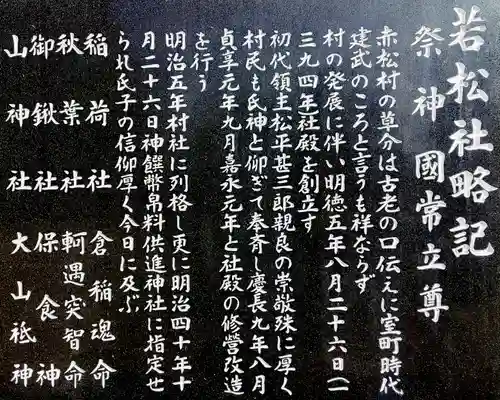 若松社略記
祭神 國常立尊
赤松村の草分は古老の口伝えに室町時代
建武のころと言うも祥ならず
村の発展に伴い明徳五年八月二十六日(一
三九四年社殿を創立す
初代領主松平甚三郎親良の崇敬殊に厚く
村民も氏神と仰ぎて奉斉し慶長九年八月
貞享元年九月嘉永元年と社殿の修營改造
を行う
明治五年村社に列格し更に明治四十年十
月二十六日神饌幣帛料供進神社に指定せ
られ氏子の信仰厚く今日に及ぶ
稲荷社 倉稲魂命
秋葉社 軻遇突智命
御鍬社 保食神
山神社 大山祗神